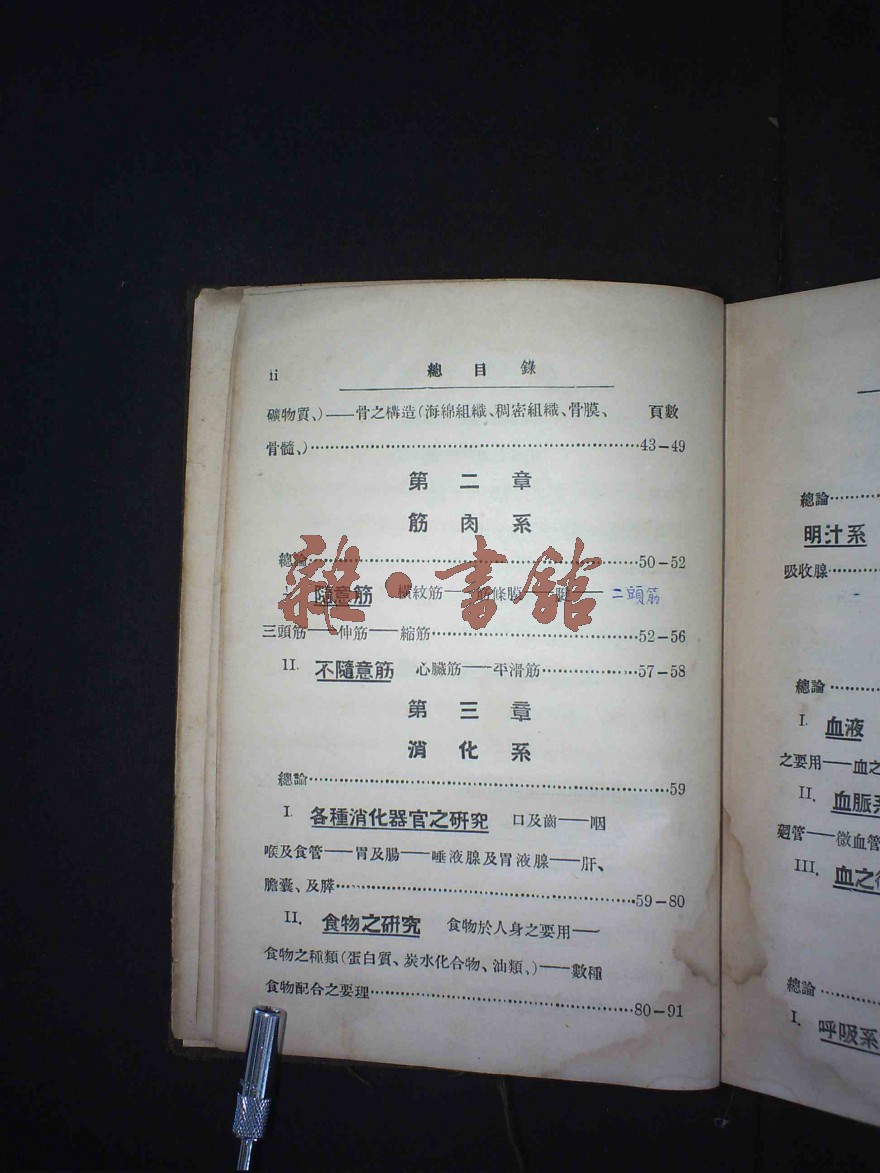 ii 總目錄
礦物質、)——骨之構造(海綿組織、稠密組織、骨膜、 頁數
骨髓、)……43–49
第二章
筋肉系
總論……50–52
I. 隨意筋 橫紋筋——筋條膜——腱—— 二頭筋
三頭筋——伸筋——縮筋……52–56
II. 不隨意筋 心臟筋——平滑筋……57–58
第三章
消化系
總論……59
I. 各種消化器官之研究 口及齒——咽
喉及食管——胃及腸——唾液腺及胃液腺——肝、
膽囊、及膵……59–80
II. 食物之研究 食物於人身之要用——
食物之種類(蛋白質、炭水化合物、油類、)——數種
食物配合之要理……80–91
雜·書館
總論……
明汁系
吸收腺……
總論……
I. 血液
之要用——血之
II. 血脈系
迴管——微血管
III. 血之
總論……
I. 呼吸系